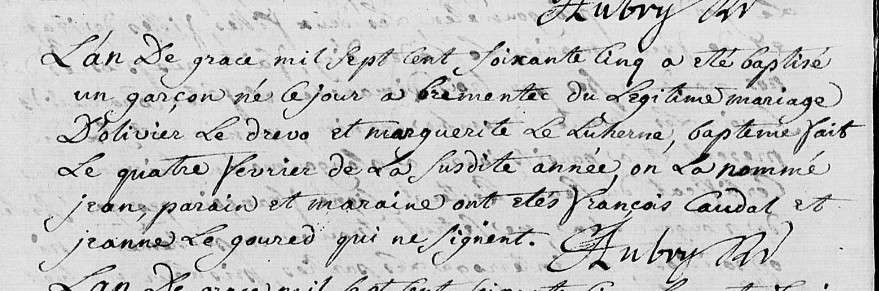 Aubry Rr
L'an De grace mil sept cent soixante cinq a eté baptisé
un garçon né ce jour a brementec du Legitime mariage
D'olivier Le drevo et marguerite Le Luherne, bapteme fait
Le quatre fevrier de La susdite année, on La nommé
jean, parain et maraine ont etés françois Caudal et
jeanne Le goured qui ne signent. Aubry Rr
L'an De grace mil sept cent soixante